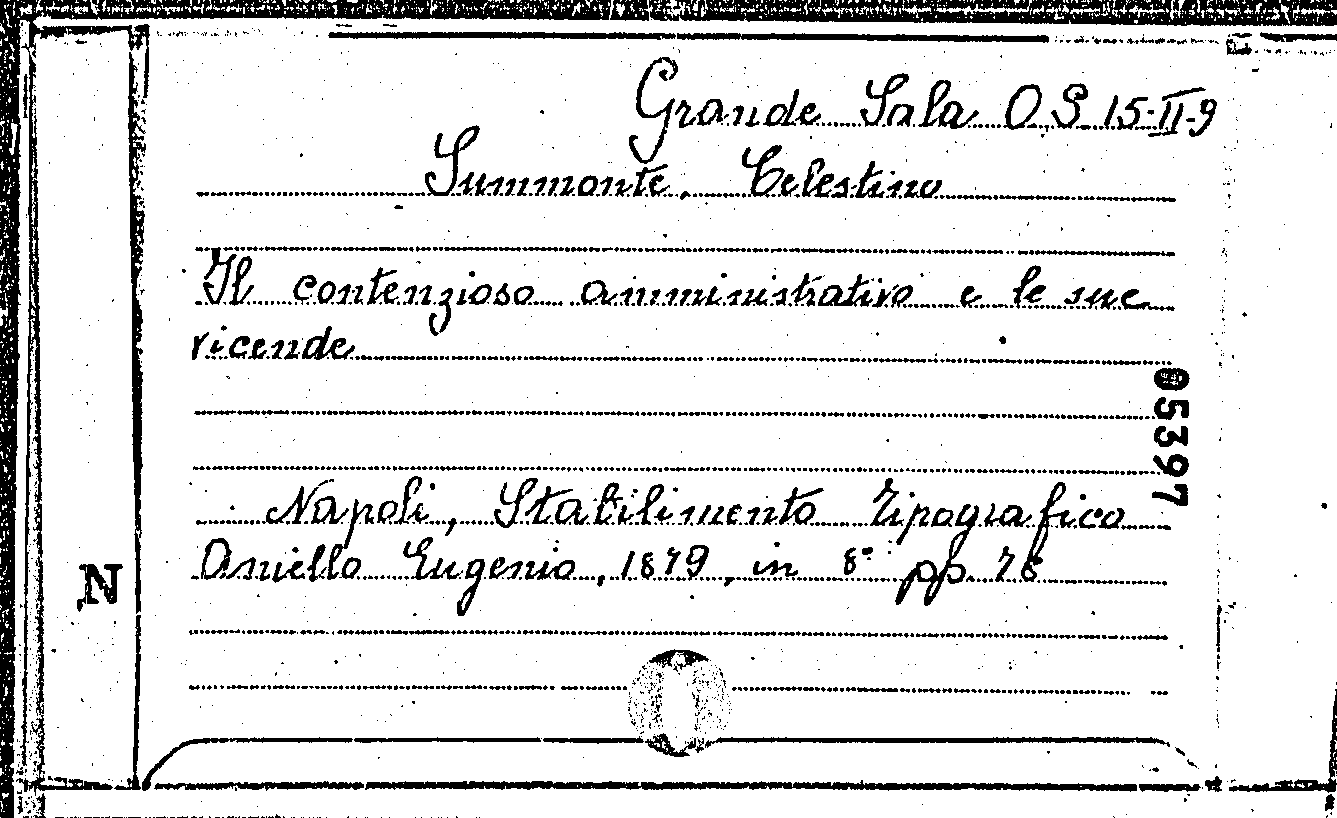 Grande Sala O S 15-II-9
Summonte, Celestino
Il contenzioso amministrativo e le sue
vicende
05397
Napoli, Stabilimento Tipografico
Aniello Eugenio, 1879, in 8° pp. 78
N